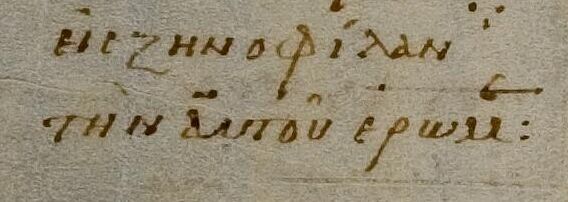 εἰς ζηνοφίλαν
τὴν ἁυτοῦ ἐρωμ: